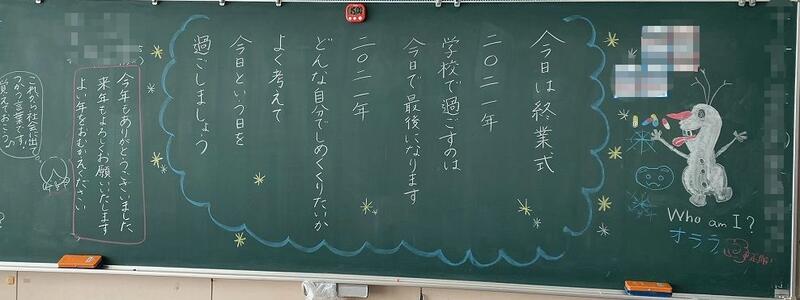 今日は終業式
二〇二一年
学校で過ごすのは
今日で最後になります
二〇二一年
どんな自分でしめくくりたいか
よく考えて
今日という日を
過ごしましょう
今年もありがとうございました
来年もよろしくお願いいたします
よい年をおむかえください
これから社会に出て
つかう言葉です。
覚えておこう♪
Who am I?
オララ